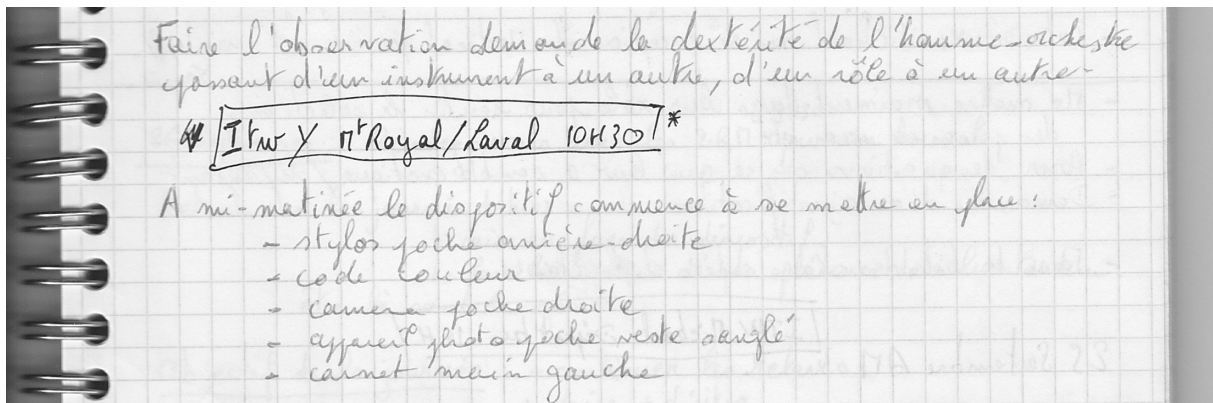 Faire l'observation demande la dextérité de l'homme-orchestre
passant d'un instrument à un autre, d'un rôle à un autre-
Itw Y Mt Royal/Laval 10H30 *
A mi-matinée le dispositif commence à se mettre en place :
- stylos poche arrière-droite
- code couleur
- camera poche droite
- appareil photo poche veste sanglé
- carnet main gauche